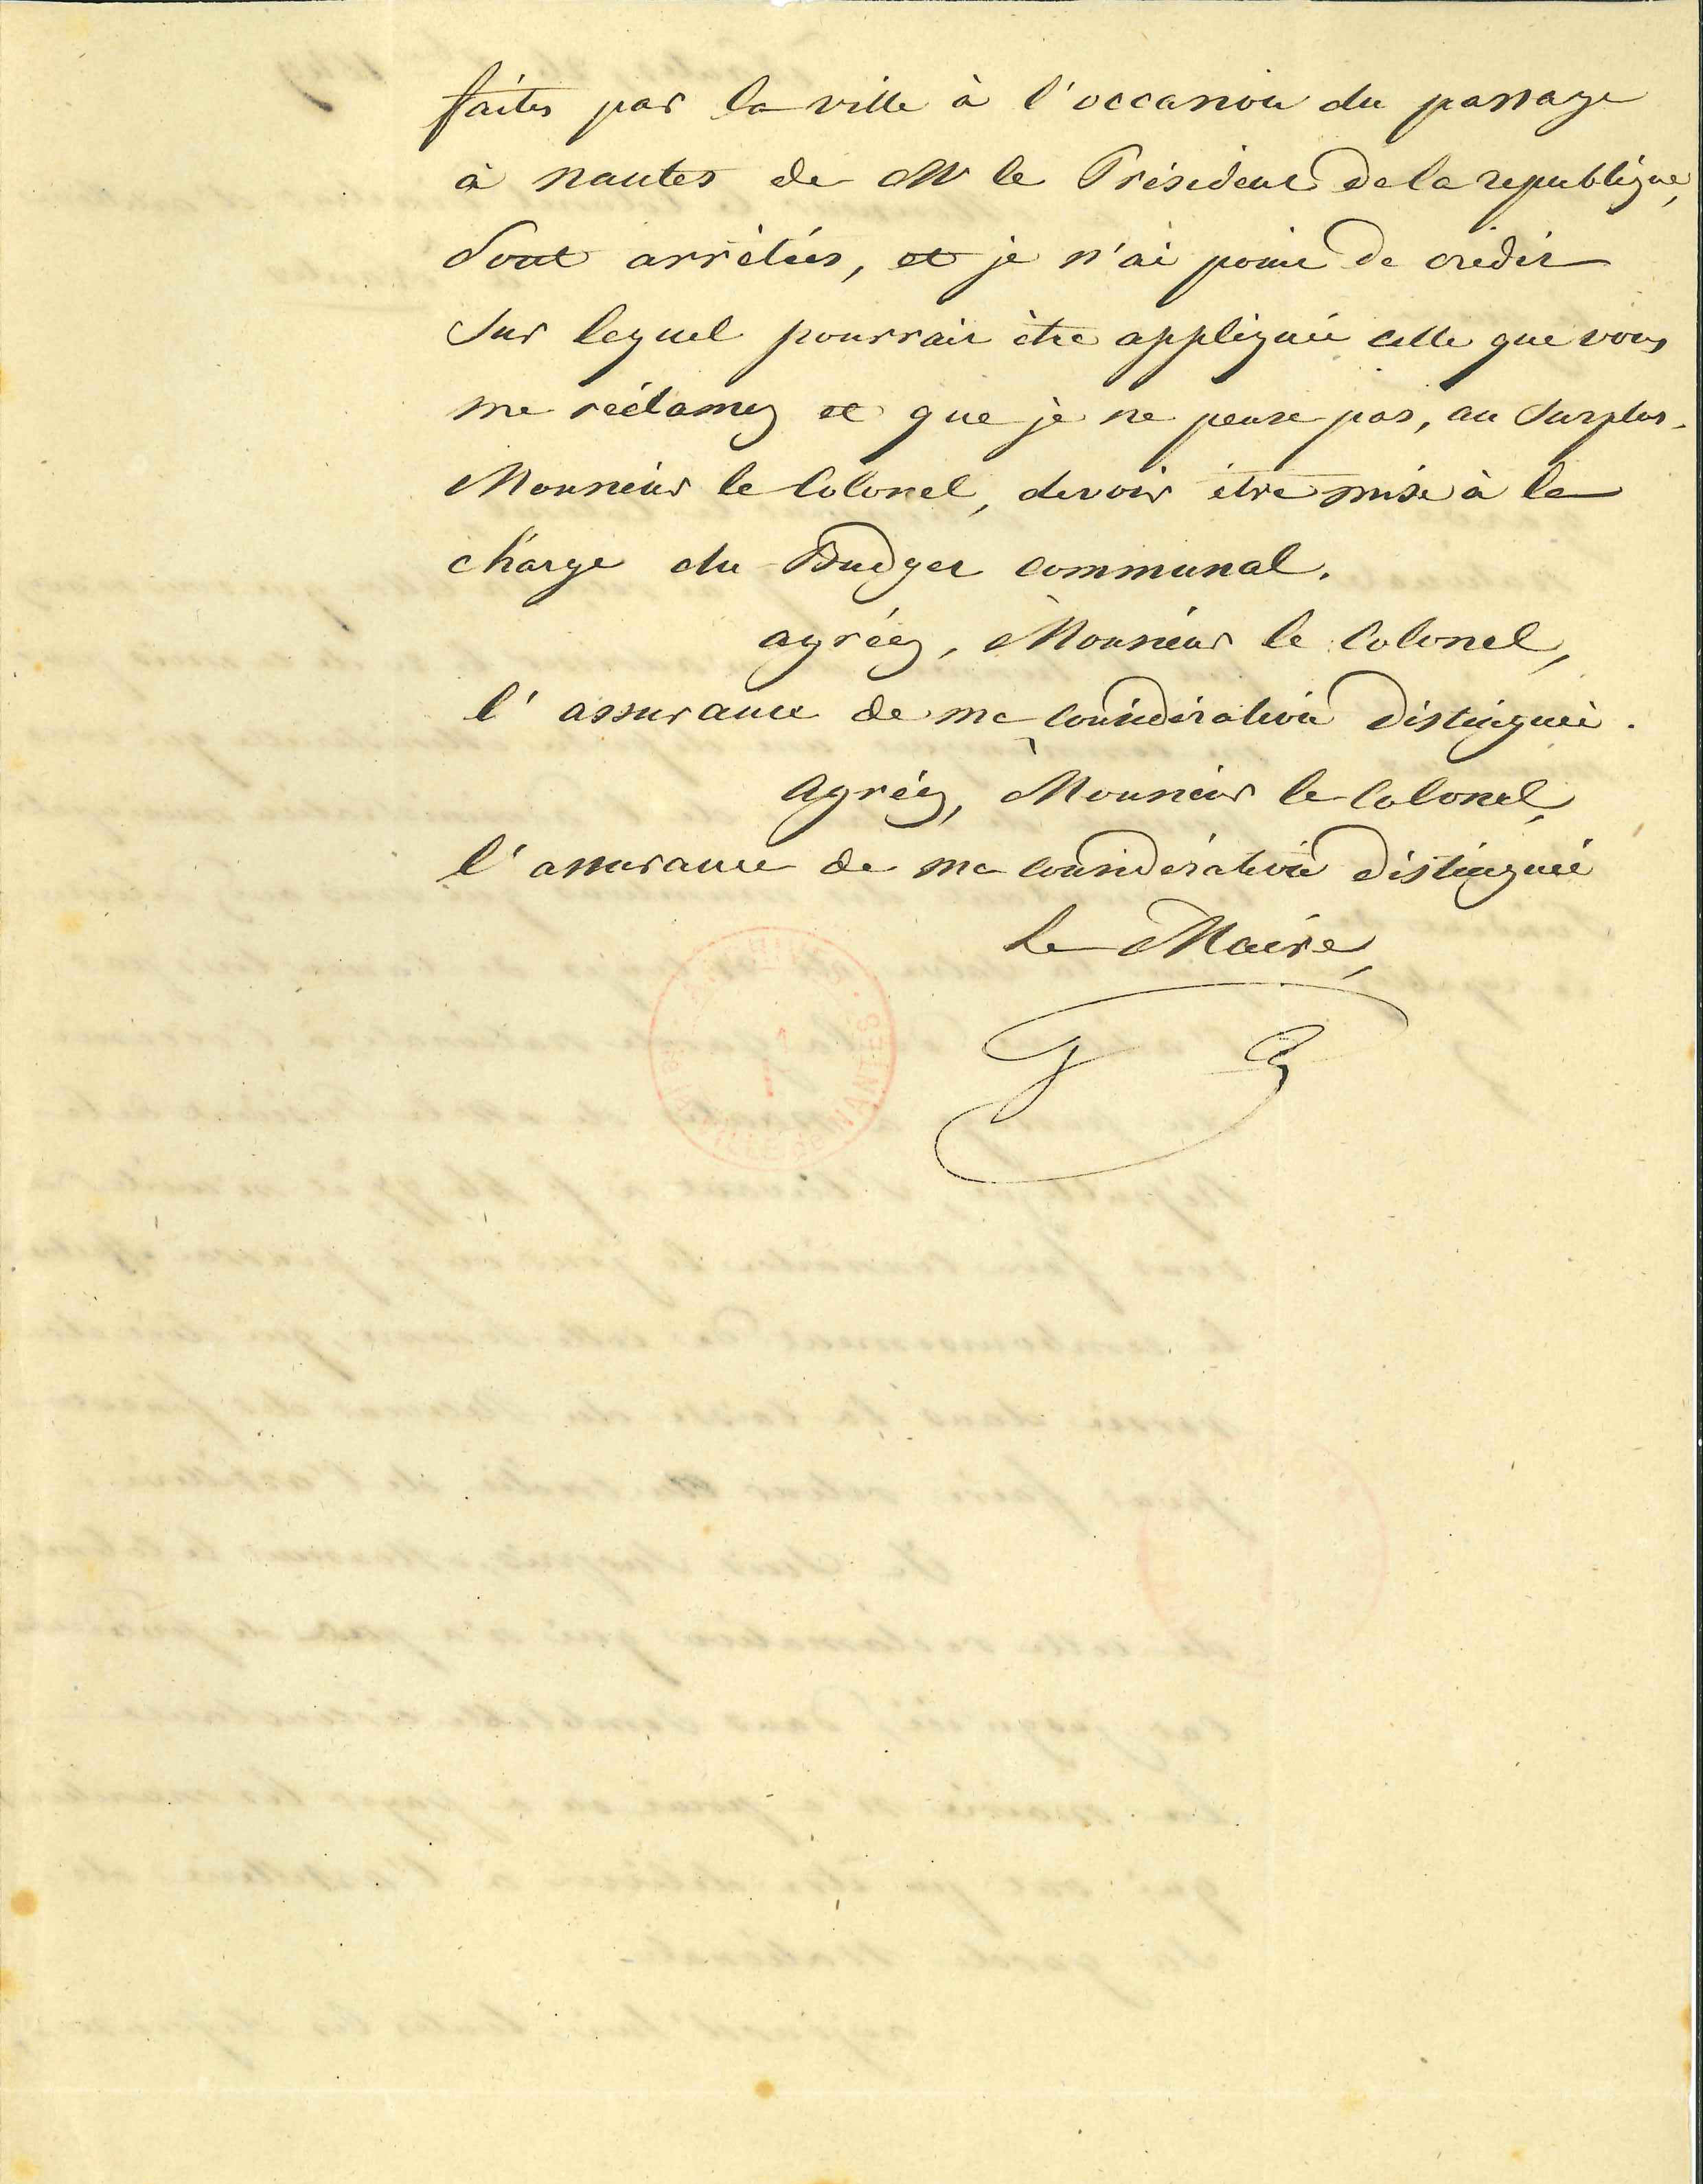 faites par la ville à l'occasion du passage
à nantes de Mr le Président de la republique,
sont arrêtées, et je n'ai point de crédit
sur lequel pourrait être appliquée celle que vous
me réclamez et que je ne pense pas, au surplus,
Monsieur le Colonel, devoir être mise à la
charge du Budget communal.
agréez, Monsieur le Colonel,
l'assurance de ma considération distinguée.
agréez, Monsieur le Colonel,
l'assurance de ma considération distinguée
Le Maire,
ARCHIVES
DE LA VILLE DE NANTES